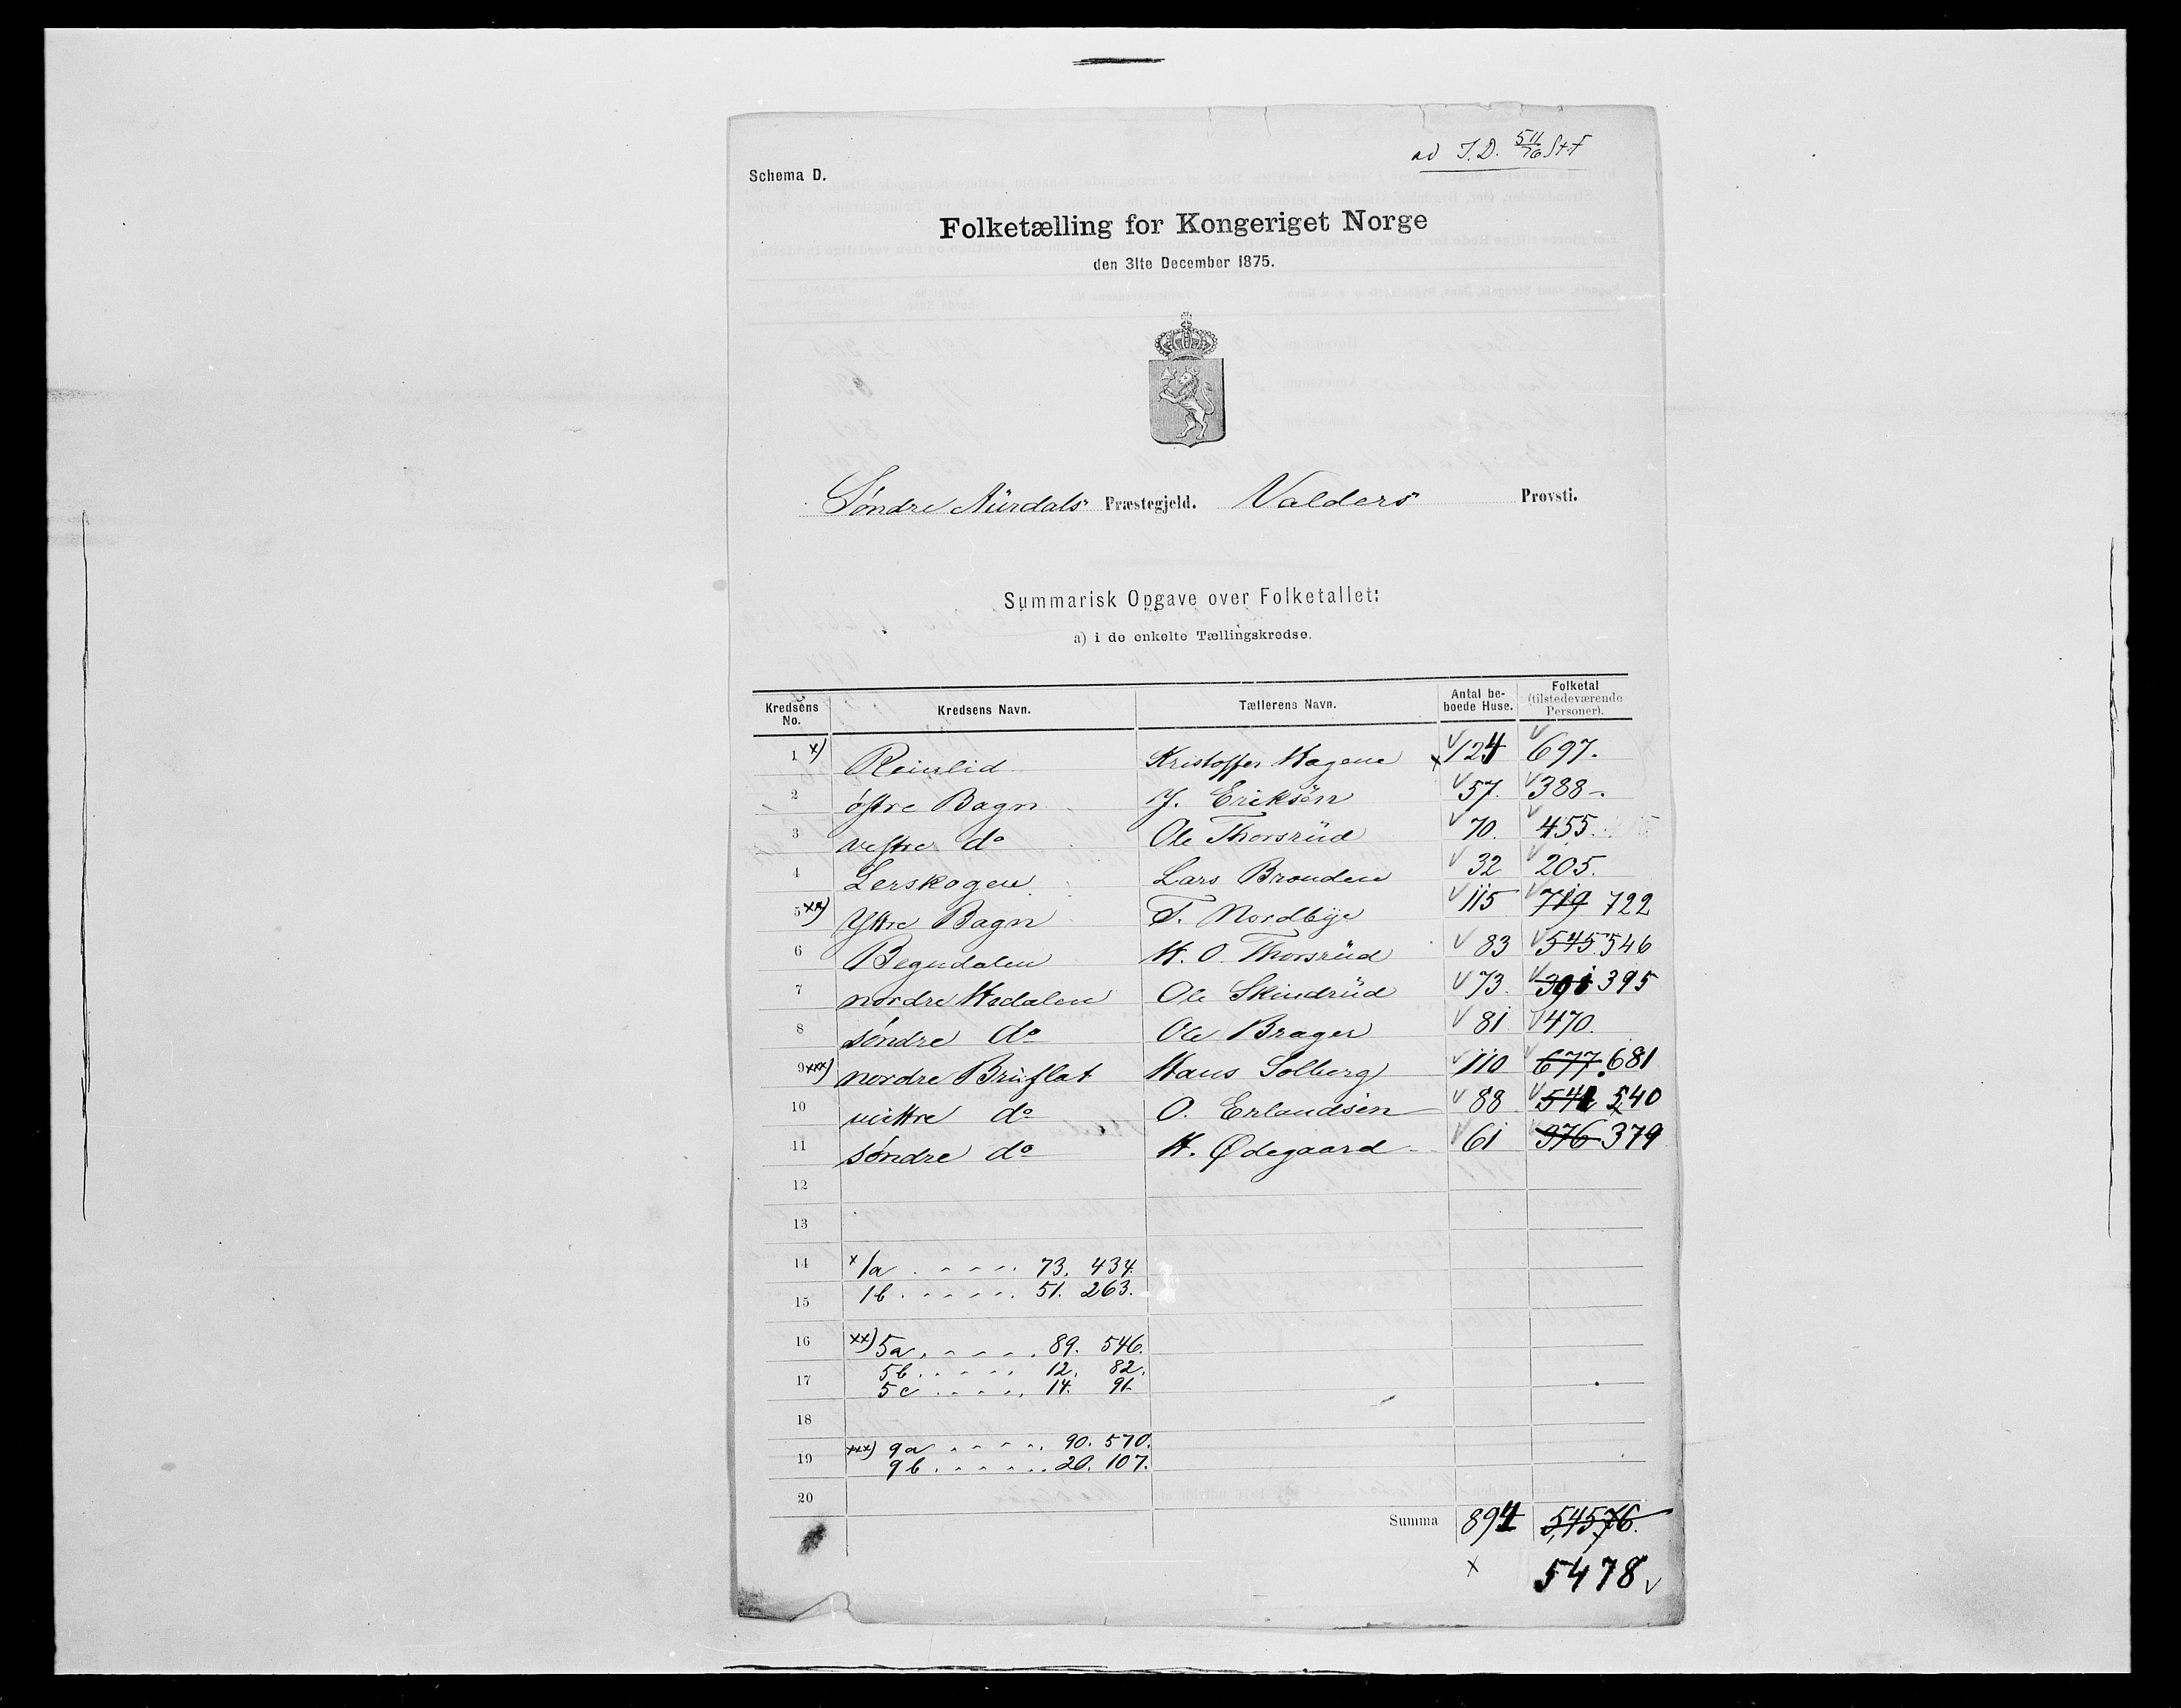 ad J.D. 511/76 Stf
Schema D.
Folketælling for Kongeriget Norge
den 31te December 1875.
Søndre Aurdals Præstegjeld. Valders Provsti.
Summarisk Opgave over Folketallet:
a) i de enkelte Tællingskredse.
Kredsens No. Kredsens Navn. Tællerens Navn. Antal beboede Huse. Folketal (tilstedeværende Personer).
1 x) Reinlid Kristoffer Hagene 124 697.
2 østre Bagn J. Eriksen 57. 388.
3 vestre do Ole Thorsrud 70. 455.
4 Lerskogen Lars Brouden 32 205.
5 xx) Yttre Bagn T. Nordbye 115 719 722
6 Begndalen H. O. Thorsrud 83 545. 546
7 nordre Hedalen Ole Skindrud 73. 395
8 søndre do Ole Brager 81 470.
9 xxx) nordre Bruflat Hans Solberg 110 677. 681
10 mittre do O. Erlandsen 88 541 540
11 søndre do H. Ødegaard 61 376 379
12
13
14 x/1a . . . . . 73. 434.
15 1b . . . . . . 51. 263.
16 xx) 5a . . . . . 89. 546.
17 5b . . . . . 12. 82.
5c . . . . . 14. 91.
18
19 xxx) 9a . . . . . 90. 570.
9b . . . . . . 20. 107.
20
Summa 894
x 5478